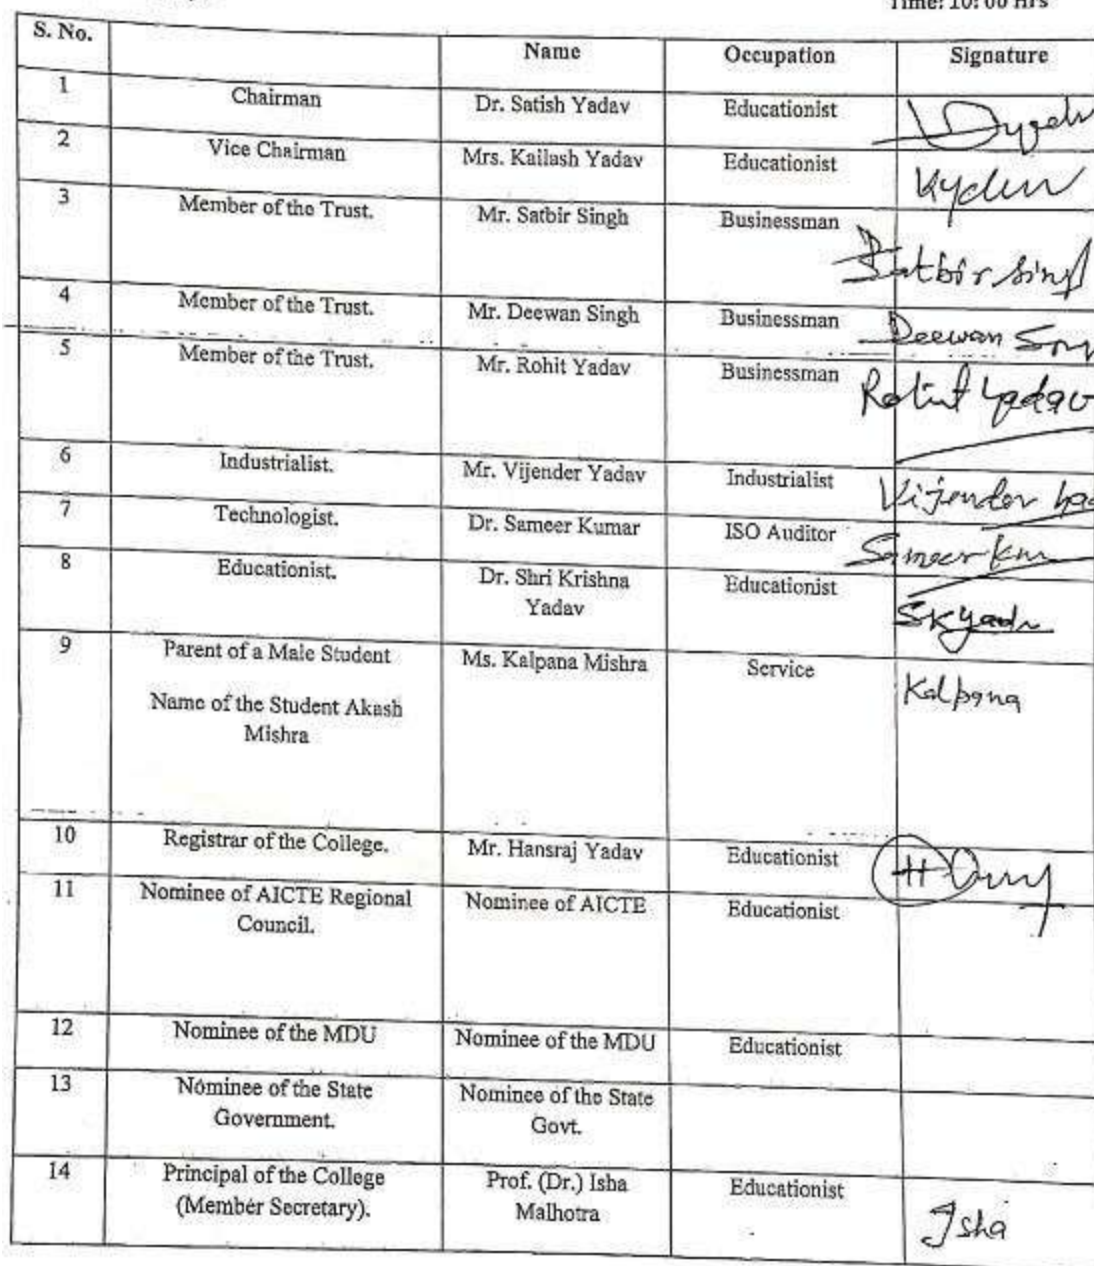 Time: 10:00 Hrs
S. No. Name Occupation Signature
1 Chairman Dr. Satish Yadav Educationist
2 Vice Chairman Mrs. Kailash Yadav Educationist
3 Member of the Trust. Mr. Satbir Singh Businessman Satbir Singh
4 Member of the Trust. Mr. Deewan Singh Businessman Deewan
5 Member of the Trust. Mr. Rohit Yadav Businessman Rohit Yadav
6 Industrialist. Mr. Vijender Yadav Industrialist Vijender
7 Technologist. Dr. Sameer Kumar ISO Auditor Sameer
8 Educationist. Dr. Shri Krishna Educationist
Yadav SKYadv
9 Parent of a Male Student Ms. Kalpana Mishra Service
Name of the Student Akash Kalpana
Mishra
10 Registrar of the College. Mr. Hansraj Yadav Educationist
11 Nominee of AICTE Regional Nominee of AICTE Educationist
Council.
12 Nominee of the MDU Nominee of the MDU Educationist
13 Nominee of the State Nominee of the State
Government. Govt.
14 Principal of the College Prof. (Dr.) Isha Educationist
(Member Secretary). Malhotra Isha